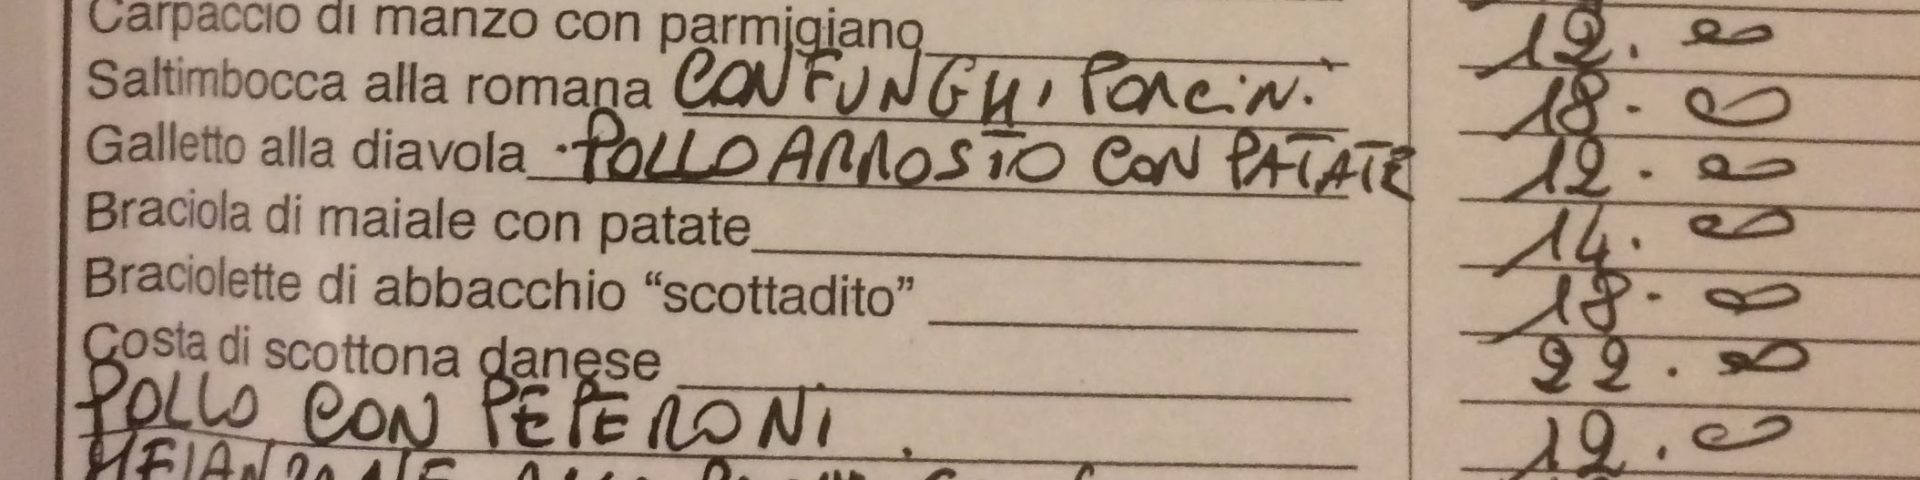 Carpaccio di manzo con parmigiano 12.00
Saltimbocca alla romana CON FUNGHI PORCINI 18.00
Galletto alla diavola POLLO ARROSTO CON PATATE 12.00
Braciola di maiale con patate 14.00
Braciolette di abbacchio “scottadito” 18.00
Costa di scottona danese 22.00
POLLO CON PEPERONI 12.00
MELANZANE ALLA